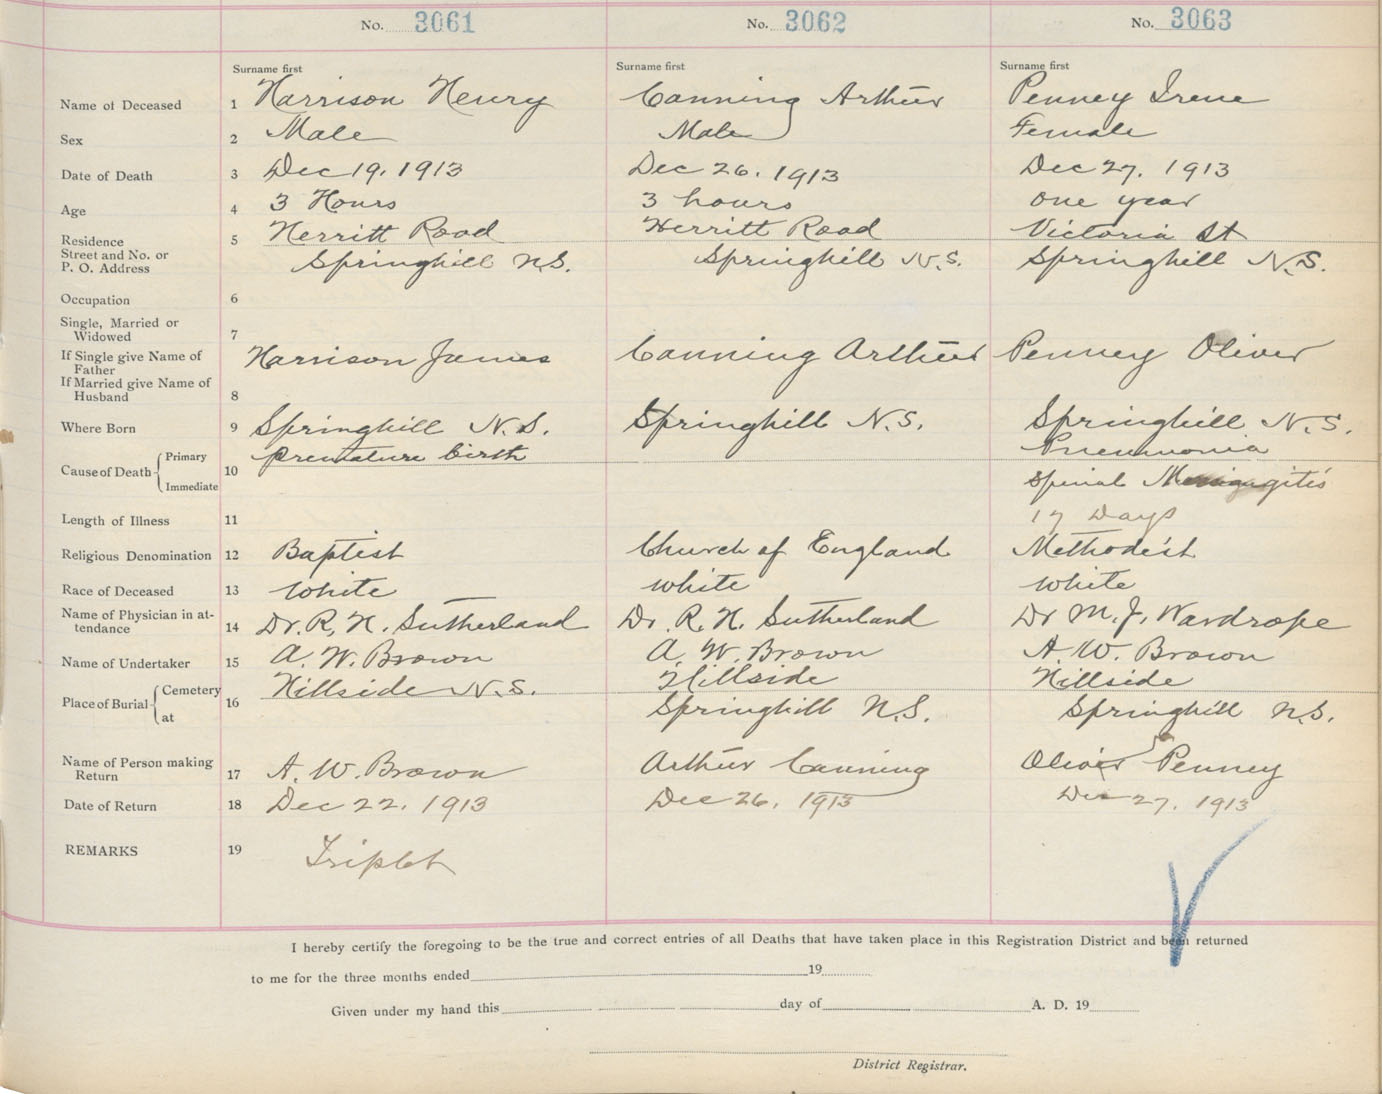 No. 3061 No. 3062 No. 3063
Surname first Surname first Surname first
Name of Deceased 1 Harrison Henry Canning Arthur Penney Irene
Sex 2 Male Male Female
Date of Death 3 Dec 19. 1913 Dec 26. 1913 Dec 27. 1913
Age 4 3 Hours 3 hours one year
Residence 5 Herritt Road Herritt Road Victoria St
Street and No. or
P. O. Address Springhill N.S. Springhill N.S. Springhill N.S.
Occupation 6
Single, Married or
Widowed 7
If Single give Name of
Father Harrison James Canning Arthur Penney Oliver
If Married give Name of
Husband 8
Where Born 9 Springhill N.S. Springhill N.S. Springhill N.S.
Primary premature birth Pneumonia
Cause of Death 10
Immediate spinal
Length of Illness 11 17 Days
Religious Denomination 12 Baptist Church of England Methodist
Race of Deceased 13 White white white
Name of Physician in at-
tendance 14 Dr. R. H. Sutherland Dr. R. H. Sutherland Dr M. J. Wardrope
Name of Undertaker 15 A. W. Brown A. W. Brown A. W. Brown
Cemetery Hillside N.S. Hillside Hillside
Place of Burial 16
at Springhill N.S. Springhill N.S.
Name of Person making
Return 17 A. W. Brown Arthur Canning Oliver Penney
Date of Return 18 Dec 22. 1913 Dec 26. 1913 Dec 27. 1913
REMARKS 19 Triplet
I hereby certify the foregoing to be the true and correct entries of all Deaths that have taken place in this Registration District and been returned
to me for the three months ended 19
Given under my hand this day of A. D. 19
District Registrar.